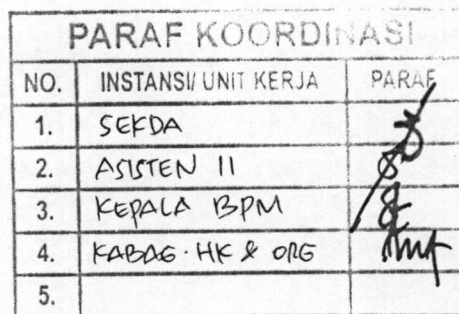 PARAF KOORDINASI
NO. INSTANSI/ UNIT KERJA PARAF
1. SEKDA
2. ASISTEN II
3. KEPALA BPM
4. KABAG. HK & ORG
5.